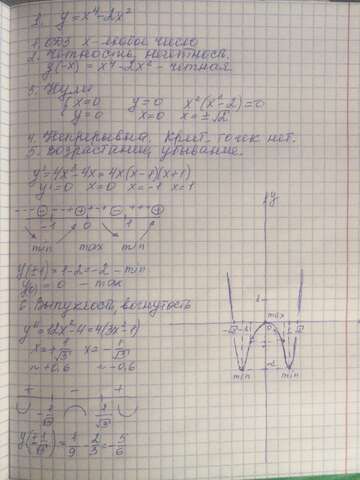 1. y=x⁴-2x²
1. ОДЗ x - любое число
2. Чётность, нечётнось.
y(-x) = x⁴-2x² - чётная
3. Нули
{ x=0 y=0 x²(x²-2)=0
y=0 x=0 x=±√2
4. Непрерывна. Крит. точек нет.
5. Возрастание, убывание.
y'=4x³-4x=4x(x-1)(x+1)
y'=0 x=0 x=-1 x=1
-1 0 1
min max min
y(±1)=1-2=-2 - min
y(0) = 0 - max
6. Выпуклость, вогнутость
y''=12x²-4=4(3x²-1)
x=+1/√3 x=-1/√3
≈+0,6 ≈-0,6
+ - +
-1/√3 1/√3
y(±1/√3)=1/9-2/3=-5/6
y
1
max
-√2 -1
-2
min min